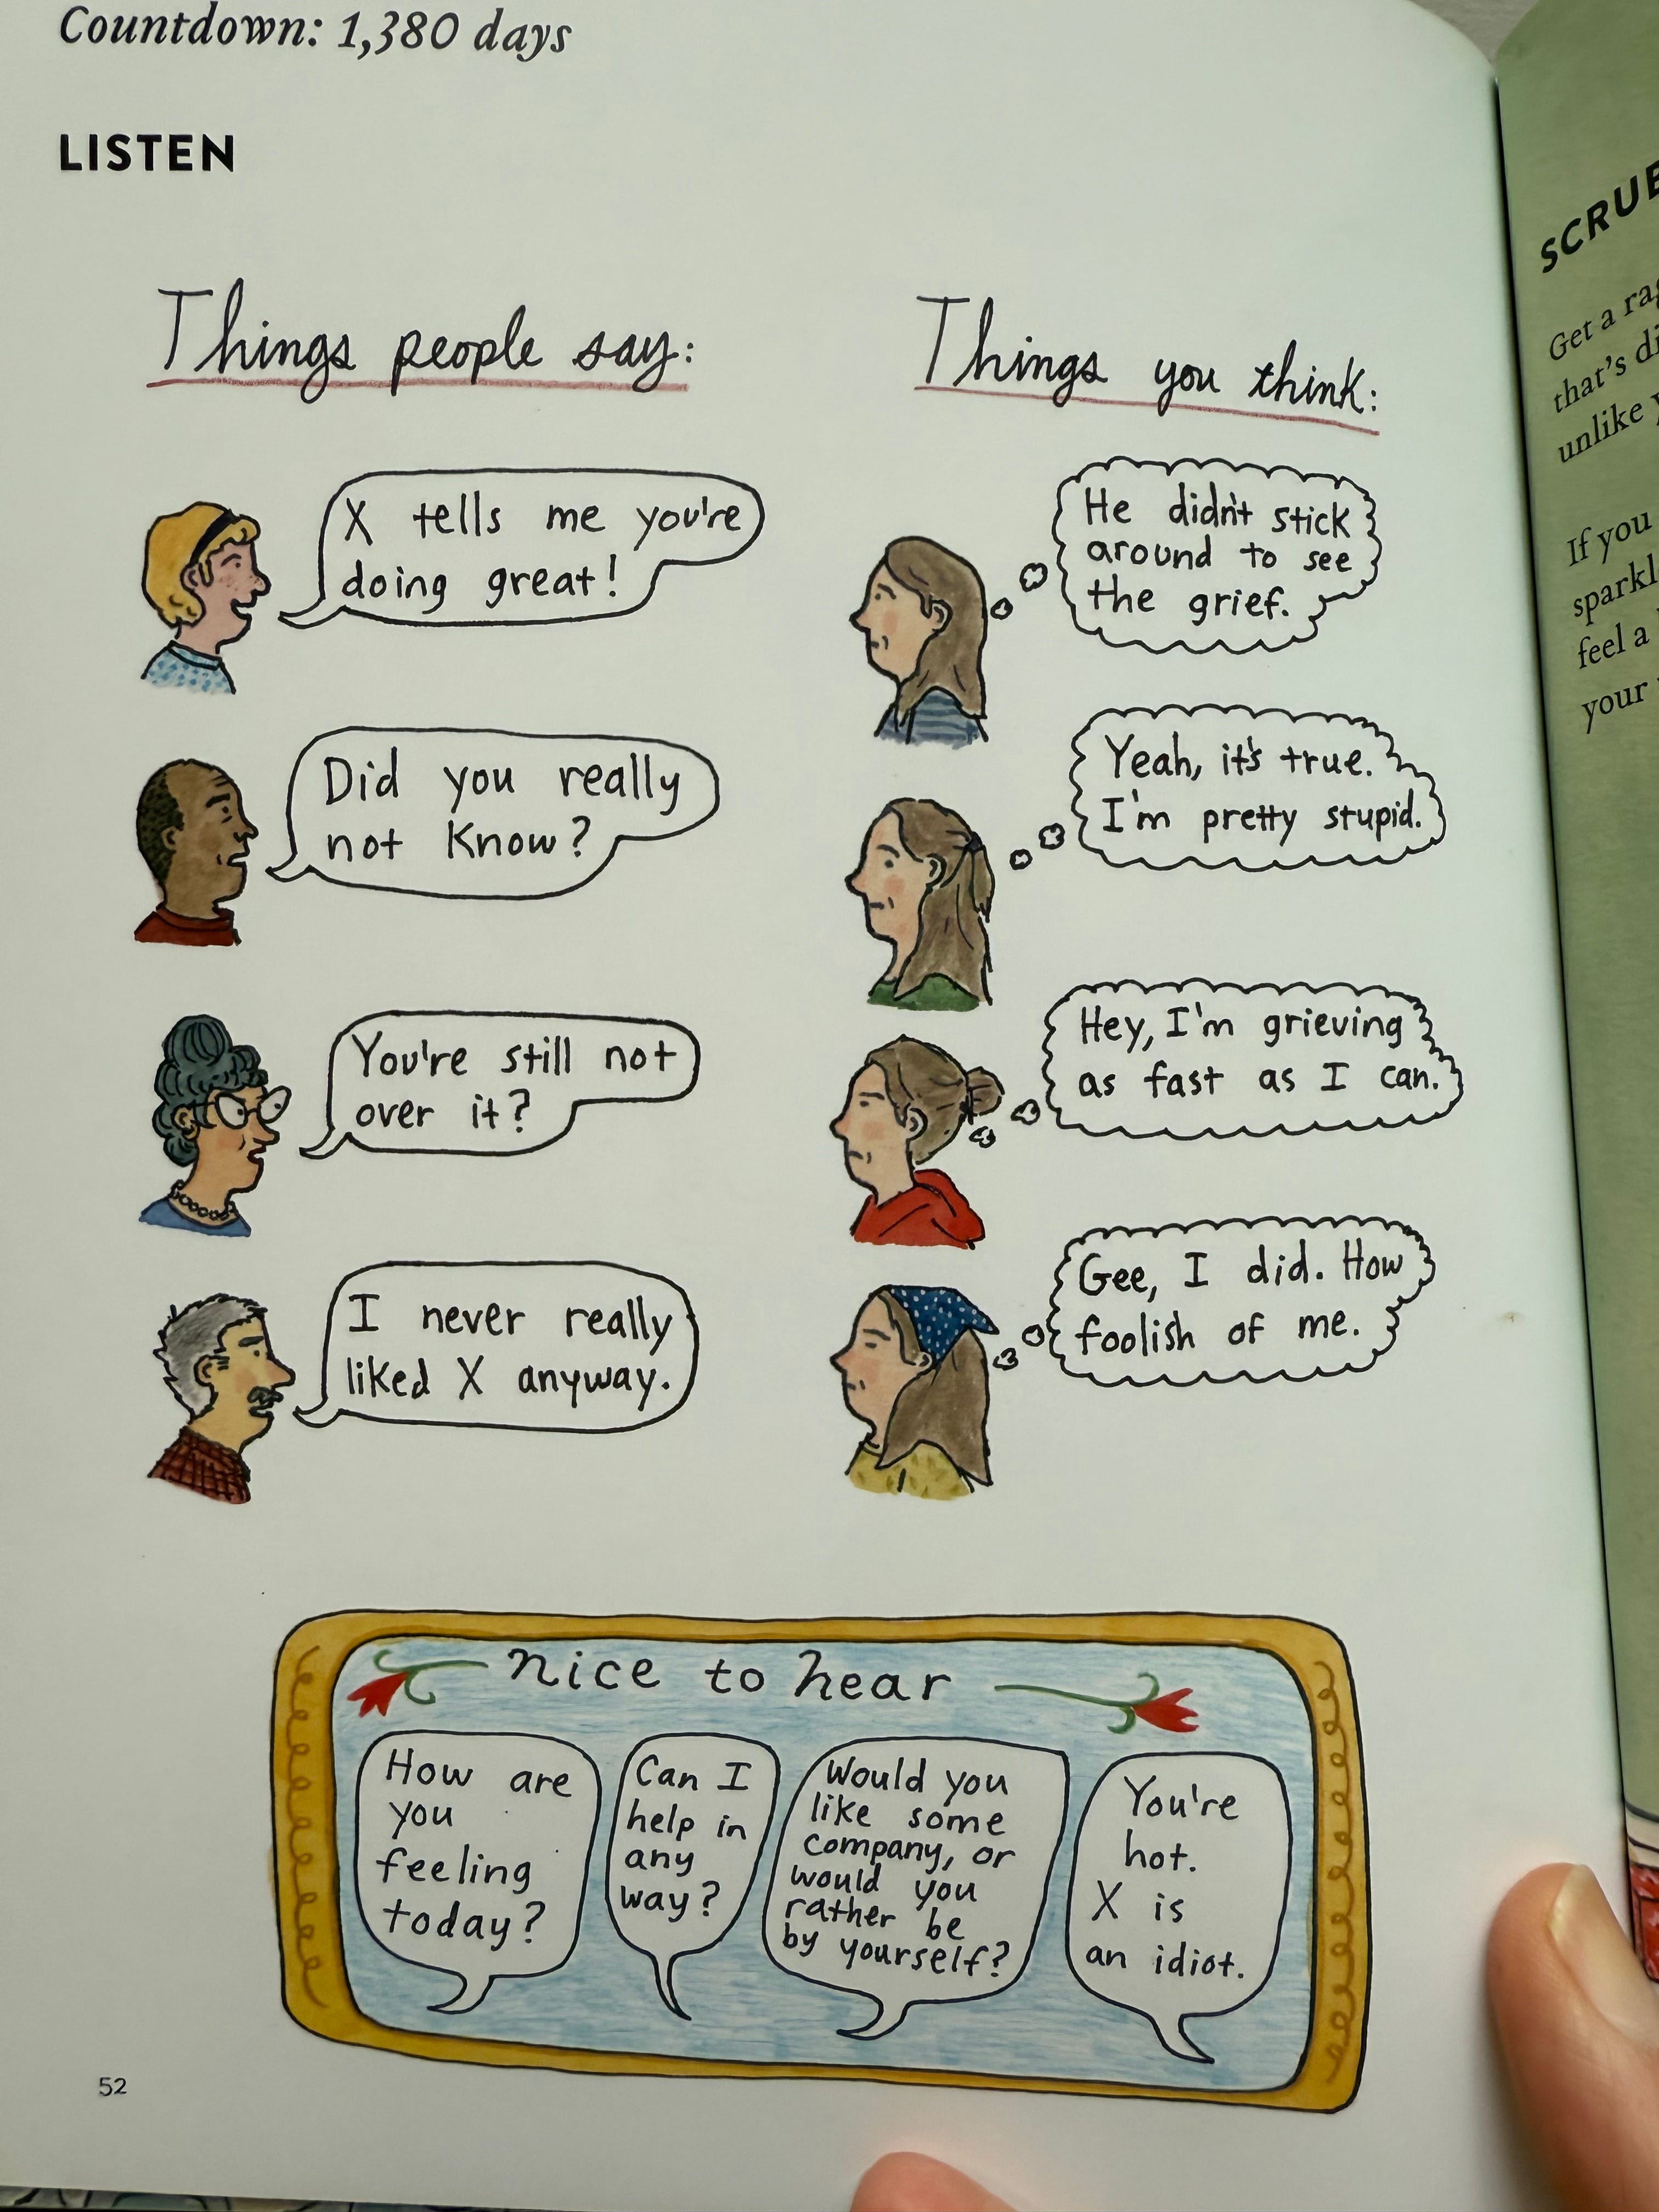 Countdown: 1,380 days
LISTEN
Things people say:
Things you think:
X tells me you're
doing great!
He didn't stick
around to see
the grief.
Did you really
not know?
Yeah, it's true.
I'm pretty stupid.
You're still not
over it?
Hey, I'm grieving
as fast as I can.
I never really
liked X anyway.
Gee, I did. How
foolish of me.
nice to hear
How are
you
feeling
today?
Can I
help in
any
way?
Would you
like some
company, or
would you
rather be
by yourself?
You're
hot.
X is
an idiot.
52
Get a
that's
unlike
If you
feel a
your